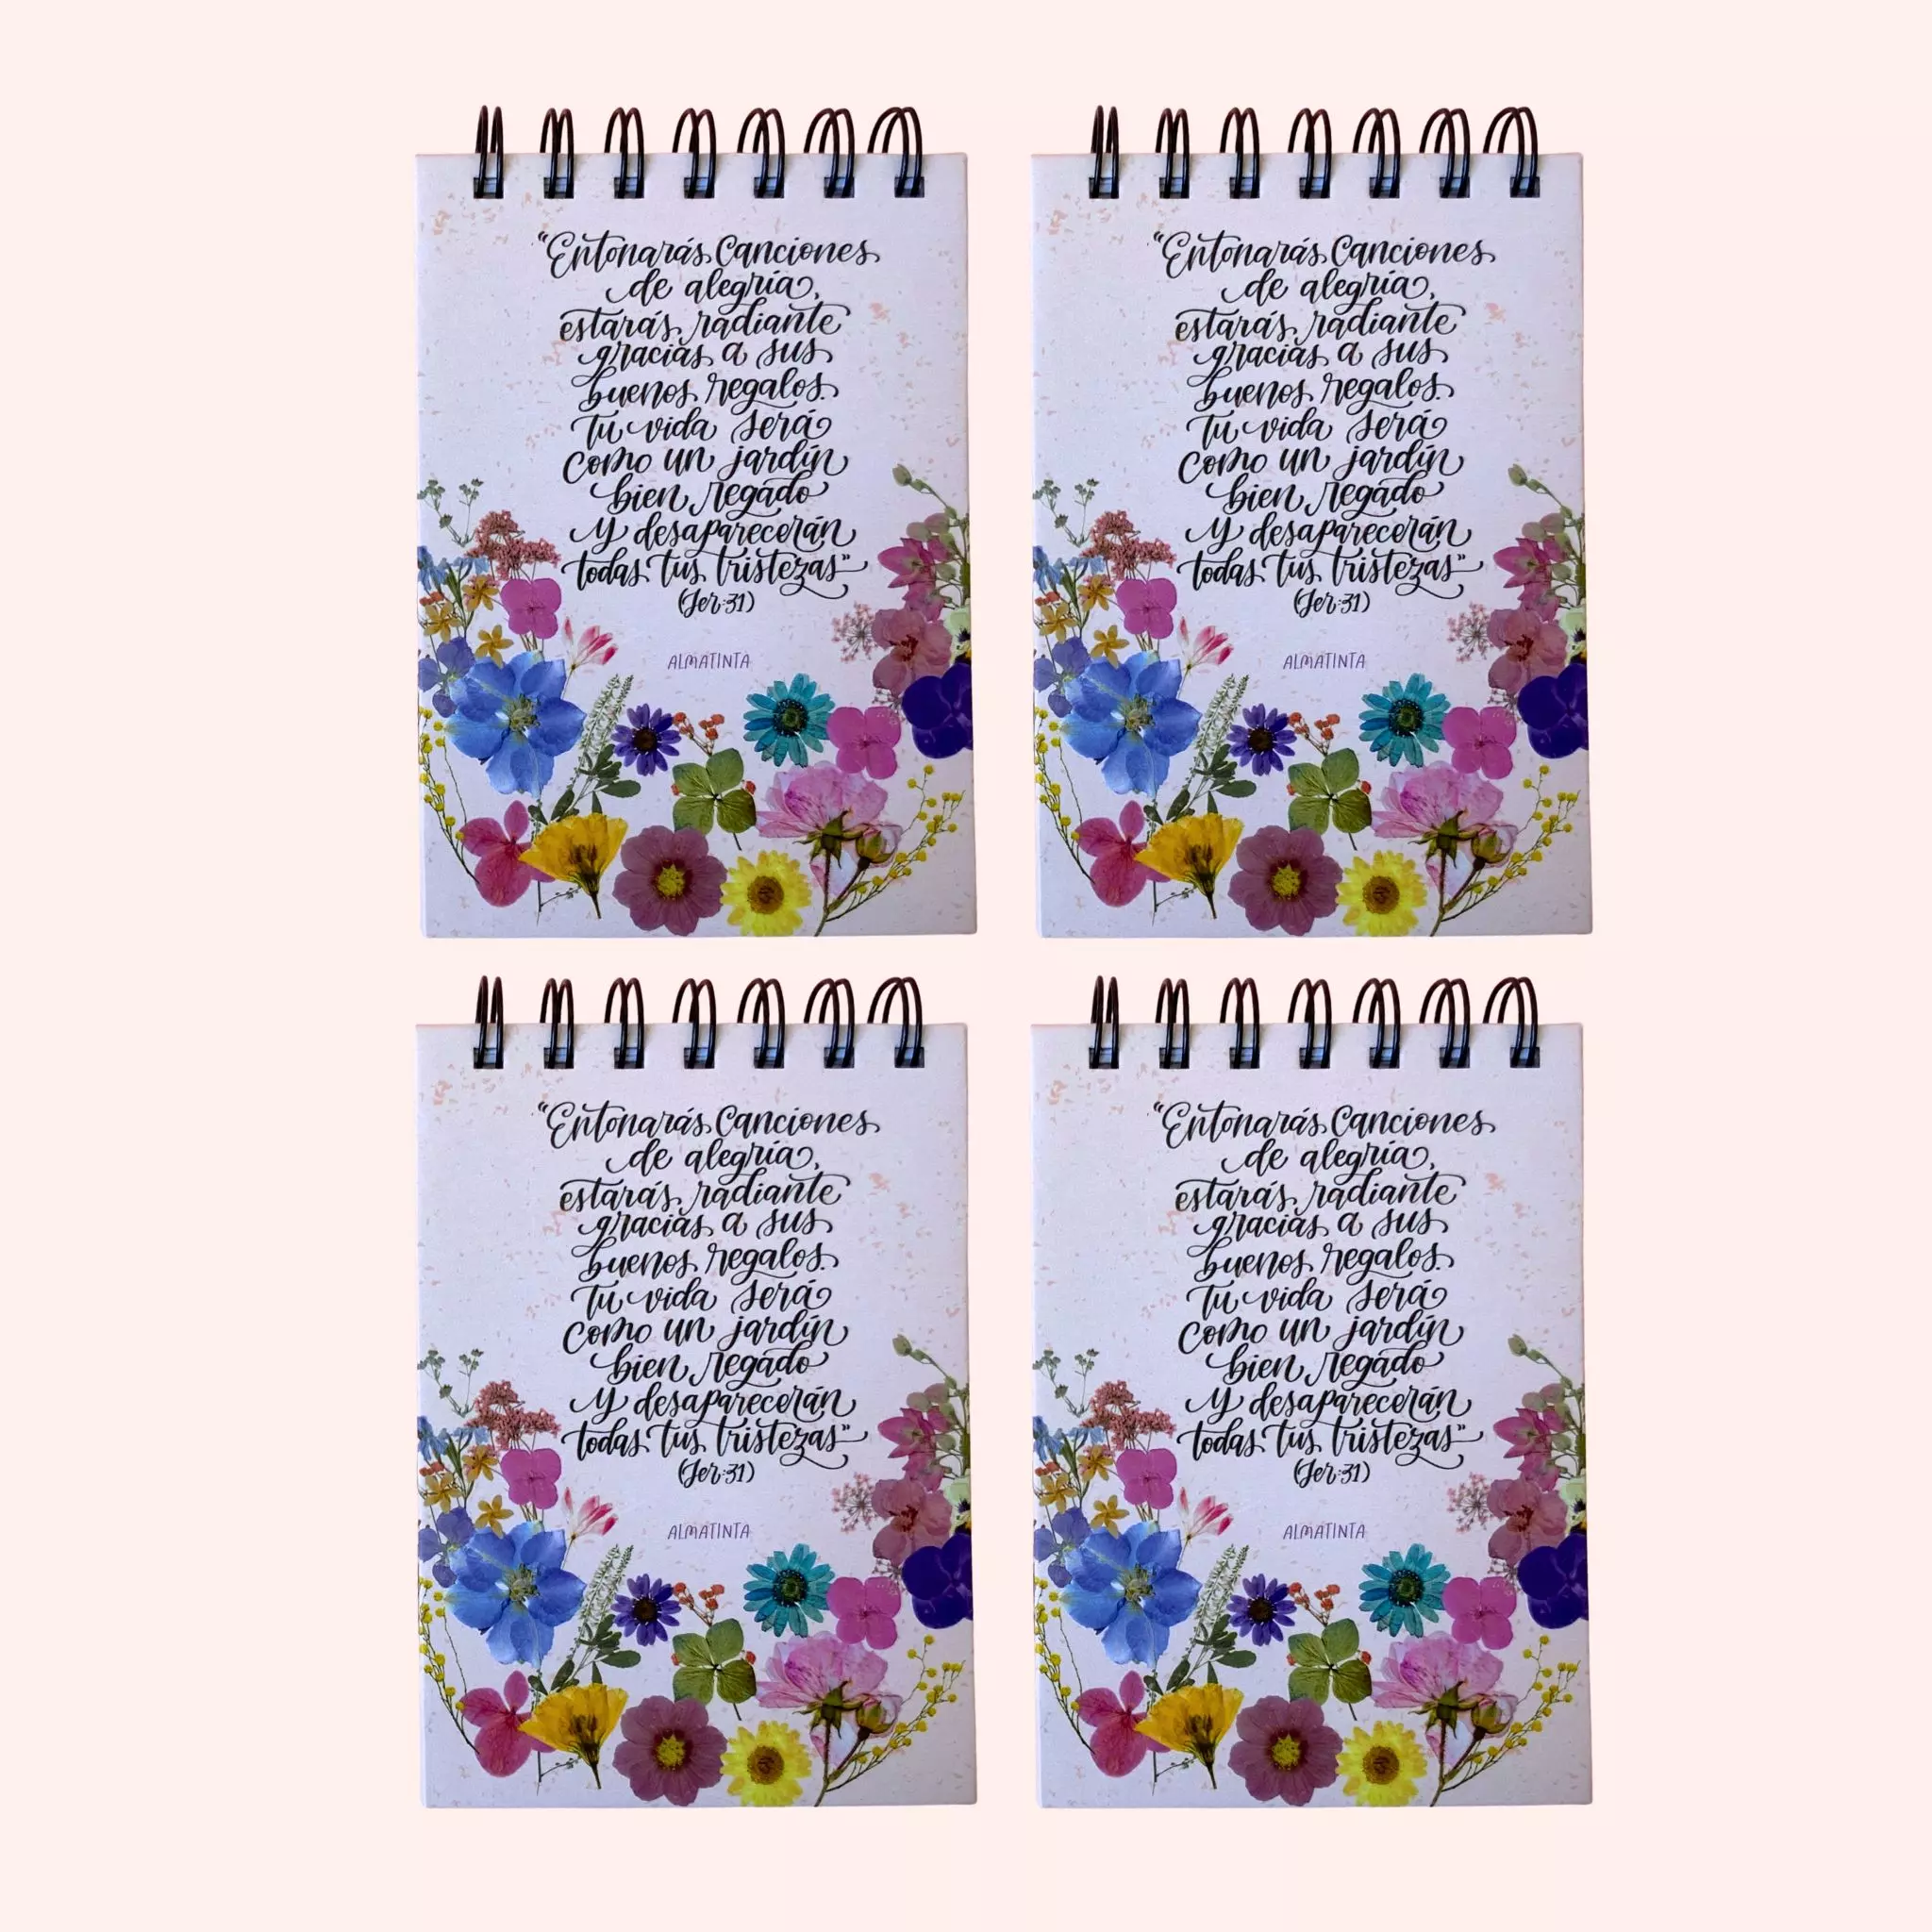 “Entonarás Canciones
de alegría,
estarás radiante
gracias a sus
buenos regalos.
Tu vida será
como un jardín
bien regado
y desaparecerán
todas tus tristezas”
(Jer:31)
ALMATINTA
“Entonarás Canciones
de alegría,
estarás radiante
gracias a sus
buenos regalos.
Tu vida será
como un jardín
bien regado
y desaparecerán
todas tus tristezas”
(Jer:31)
ALMATINTA
“Entonarás Canciones
de alegría,
estarás radiante
gracias a sus
buenos regalos.
Tu vida será
como un jardín
bien regado
y desaparecerán
todas tus tristezas”
(Jer:31)
ALMATINTA
“Entonarás Canciones
de alegría,
estarás radiante
gracias a sus
buenos regalos.
Tu vida será
como un jardín
bien regado
y desaparecerán
todas tus tristezas”
(Jer:31)
ALMATINTA